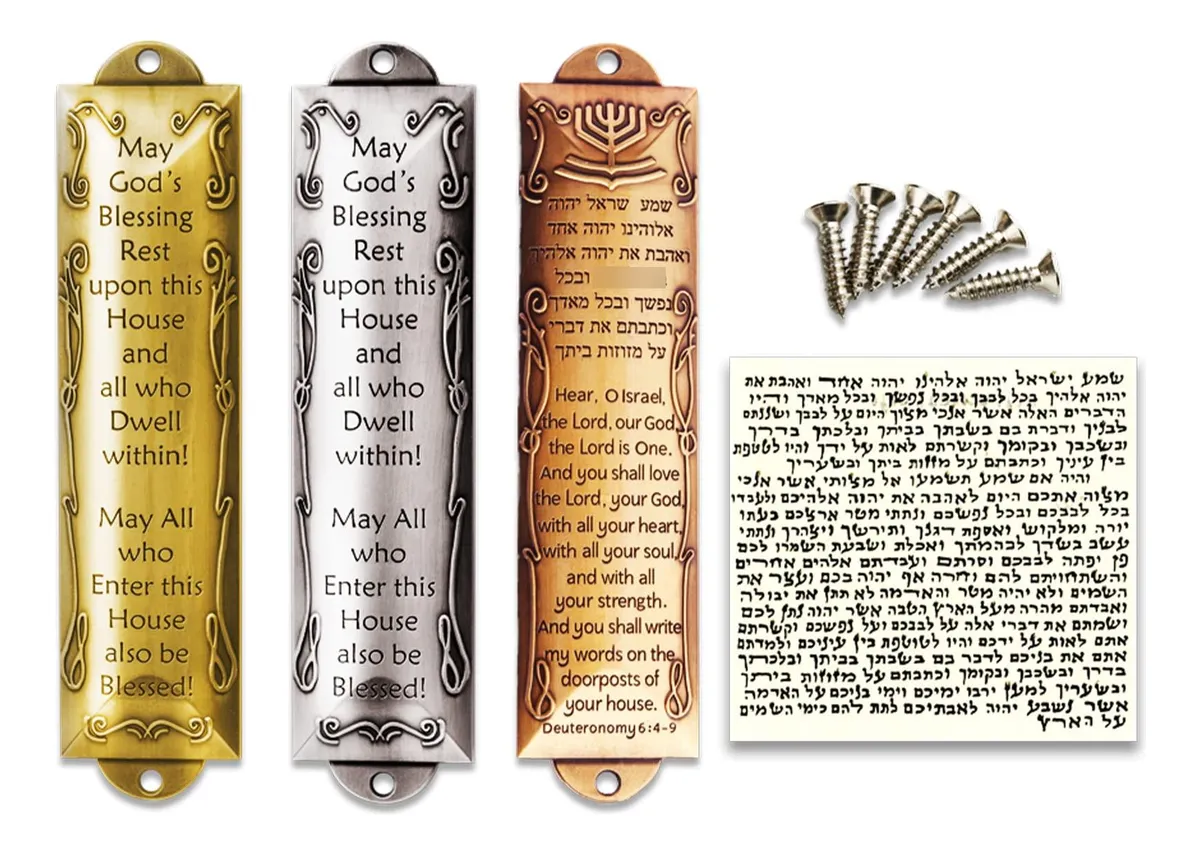 May
God's
Blessing
Rest
upon this
House
and
all who
Dwell
within!
May All
who
Enter this
House
also be
Blessed!
May
God's
Blessing
Rest
upon this
House
and
all who
Dwell
within!
May All
who
Enter this
House
also be
Blessed!
שמע שראל יהוה
אלוהינו יהוה אחד
ואהבת את יהוה אלהיך
ובכל
נפשך ובכל מאדך
וכתבתם את דברי
על מזוזות ביתך
Hear, O Israel,
the Lord, our God,
the Lord is One.
And you shall love
the Lord, your God,
with all your heart,
with all your soul,
and with all
your strength.
And you shall write
my words on the
doorposts of
your house.
Deuteronomy 6:4-9
שמע ישראל יהוה אלהינו יהוה אחד ואהבת את
יהוה אלהיך בכל לבבך ובכל נפשך ובכל מאדך והיו
הדברים האלה אשר אנכי מצוך היום על לבבך ושננתם
לבניך ודברת בם בשבתך בביתך ובלכתך בדרך
ובשכבך ובקומך וקשרתם לאות על ידך והיו לטטפת
בין עיניך וכתבתם על מזזות ביתך ובשעריך
והיה אם שמע תשמעו אל מצותי אשר אנכי
מצוה אתכם היום לאהבה את יהוה אלהיכם ולעבדו
בכל לבבכם ובכל נפשכם ונתתי מטר ארצכם בעתו
יורה ומלקוש ואספת דגנך ותירשך ויצהרך ונתתי
עשב בשדך לבהמתך ואכלת ושבעת השמרו לכם
פן יפתה לבבכם וסרתם ועבדתם אלהים אחרים
והשתחויתם להם וחרה אף יהוה בכם ועצר את
השמים ולא יהיה מטר והאדמה לא תתן את יבולה
ואבדתם מהרה מעל הארץ הטבה אשר יהוה נתן לכם
ושמתם את דברי אלה על לבבכם ועל נפשכם וקשרתם
אתם לאות על ידכם והיו לטוטפת בין עיניכם ולמדתם
אתם את בניכם לדבר בם בשבתך בביתך ובלכתך
בדרך ובשכבך ובקומך וכתבתם על מזוזות ביתך
ובשעריך למען ירבו ימיכם וימי בניכם על האדמה
אשר נשבע יהוה לאבתיכם לתת להם כימי השמים
על הארץ